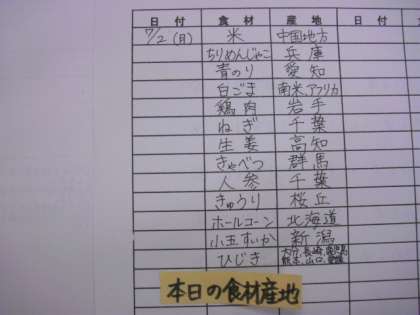 日付 食材 産地 日付
7/2(月) 米 中国地方
ちりめんじゃこ 兵庫
青のり 愛知
白ごま 南米アフリカ
鶏肉 岩手
ねぎ 千葉
生姜 高知
きゃべつ 群馬
人参 千葉
きゅうり 桜丘
ホールコーン 北海道
小玉すいか 新潟
ひじき 大分、長崎、鹿児島
熊本、山口、愛媛
本日の食材産地